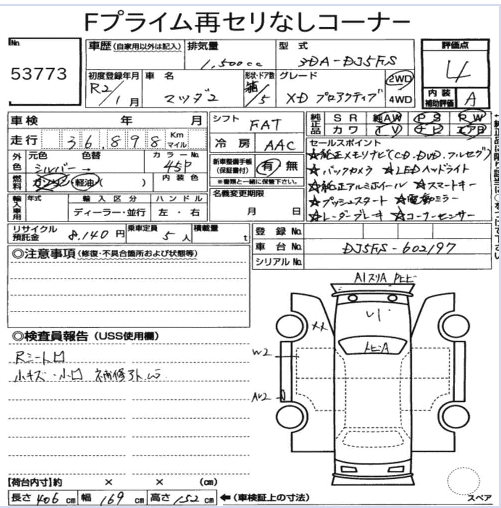 Fプライム再セリなしコーナー
No. 53773
車歴(自家用以外は記入) 排気量 1,500cc 型式 3DA-DJ5FS
評価点 4
内装補助評価 A
初度登録年月 R2/1月 車名 マツダ2 形状・ドア数 箱/5 グレード XD プロアクティブ 2WD 4WD
車検 年 月 シフト FAT
純正品 SR AW PS PW カワ TV ナビ エアB
走行 36,898 Km マイル 冷房 AAC
セールスポイント
外色 元色 シルバー 色替 → カラーNo. 45P
新車整備手帳(保証書付) 有・無
※書類と一緒に保管下さい。
★純正メモリナビ(CD、DVD、フルセグ)
★バックカメラ ★LEDヘッドライト
燃料 ガソリン・軽油・( ) 内装色
★純正アルミホイール ★スマートキー
輸入車 年式 輸入区分 ディーラー・並行 ハンドル 左・右
名義変更期限 月 日
★プッシュスタート ★電動ミラー
★レーダーブレーキ ★コーナーセンサー
リサイクル預託金 8,140円 乗車定員 5人 積載量 t
登録No.
車台No. DJ5FS-602197
シリアルNo.
◎注意事項(修復・不具合箇所および状態等)
◎検査員報告(USS使用欄)
小キズ・小凹
トビA
XX
W2
AW2
【荷台内寸】約 × × (cm)
長さ 406cm 幅 169cm 高さ 152cm ←(車検証上の寸法)
スペア